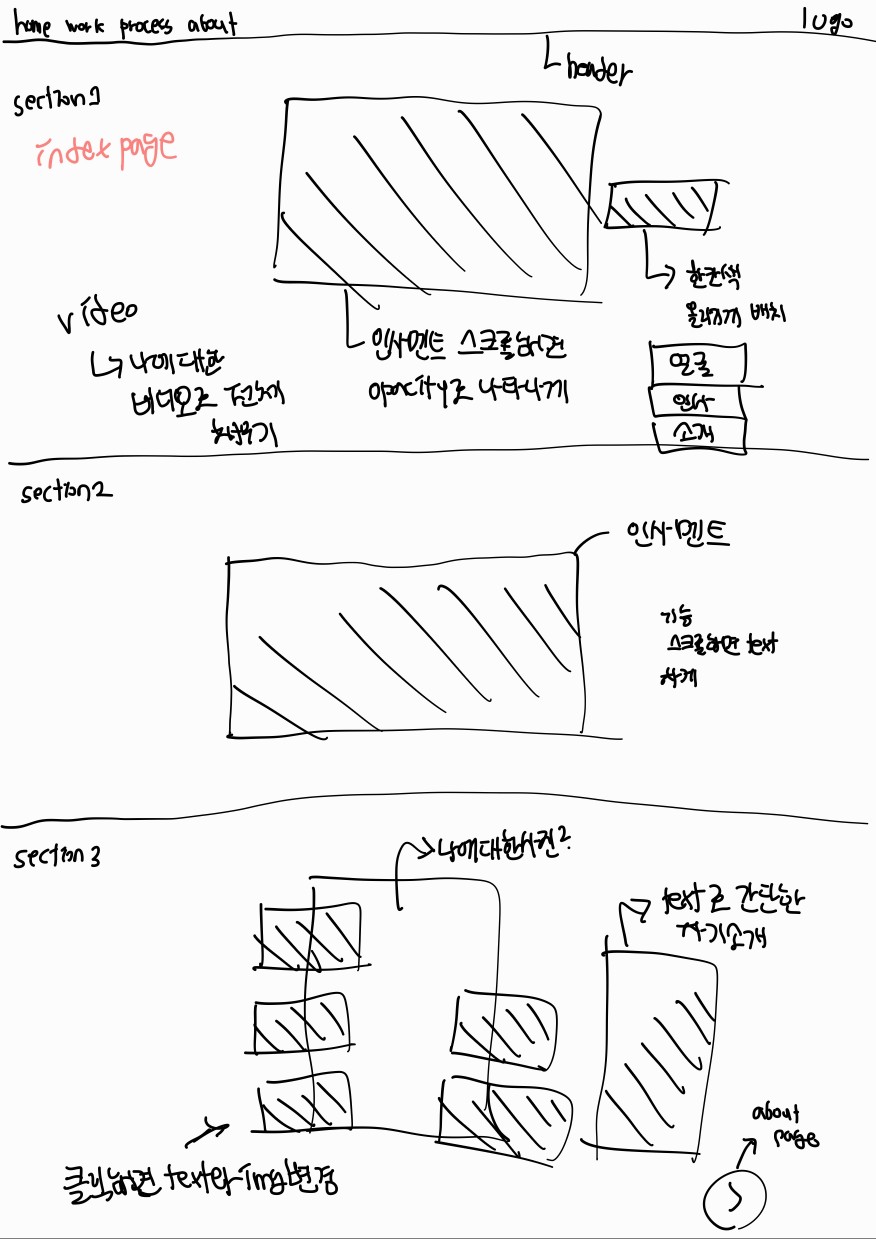 home work process about
logo
header
section1
index page
video
나에대한
비디오로 전체
채우기
인사멘트 스크롤하면
opacity로 나타나게
한칸씩
올라가게 배치
얼굴
인사
소개
section2
인사멘트
기능
스크롤하면 text
차게
section3
나에대한사진?
text로 간단한
자기소개
클릭하면 text와 img변경
about
page